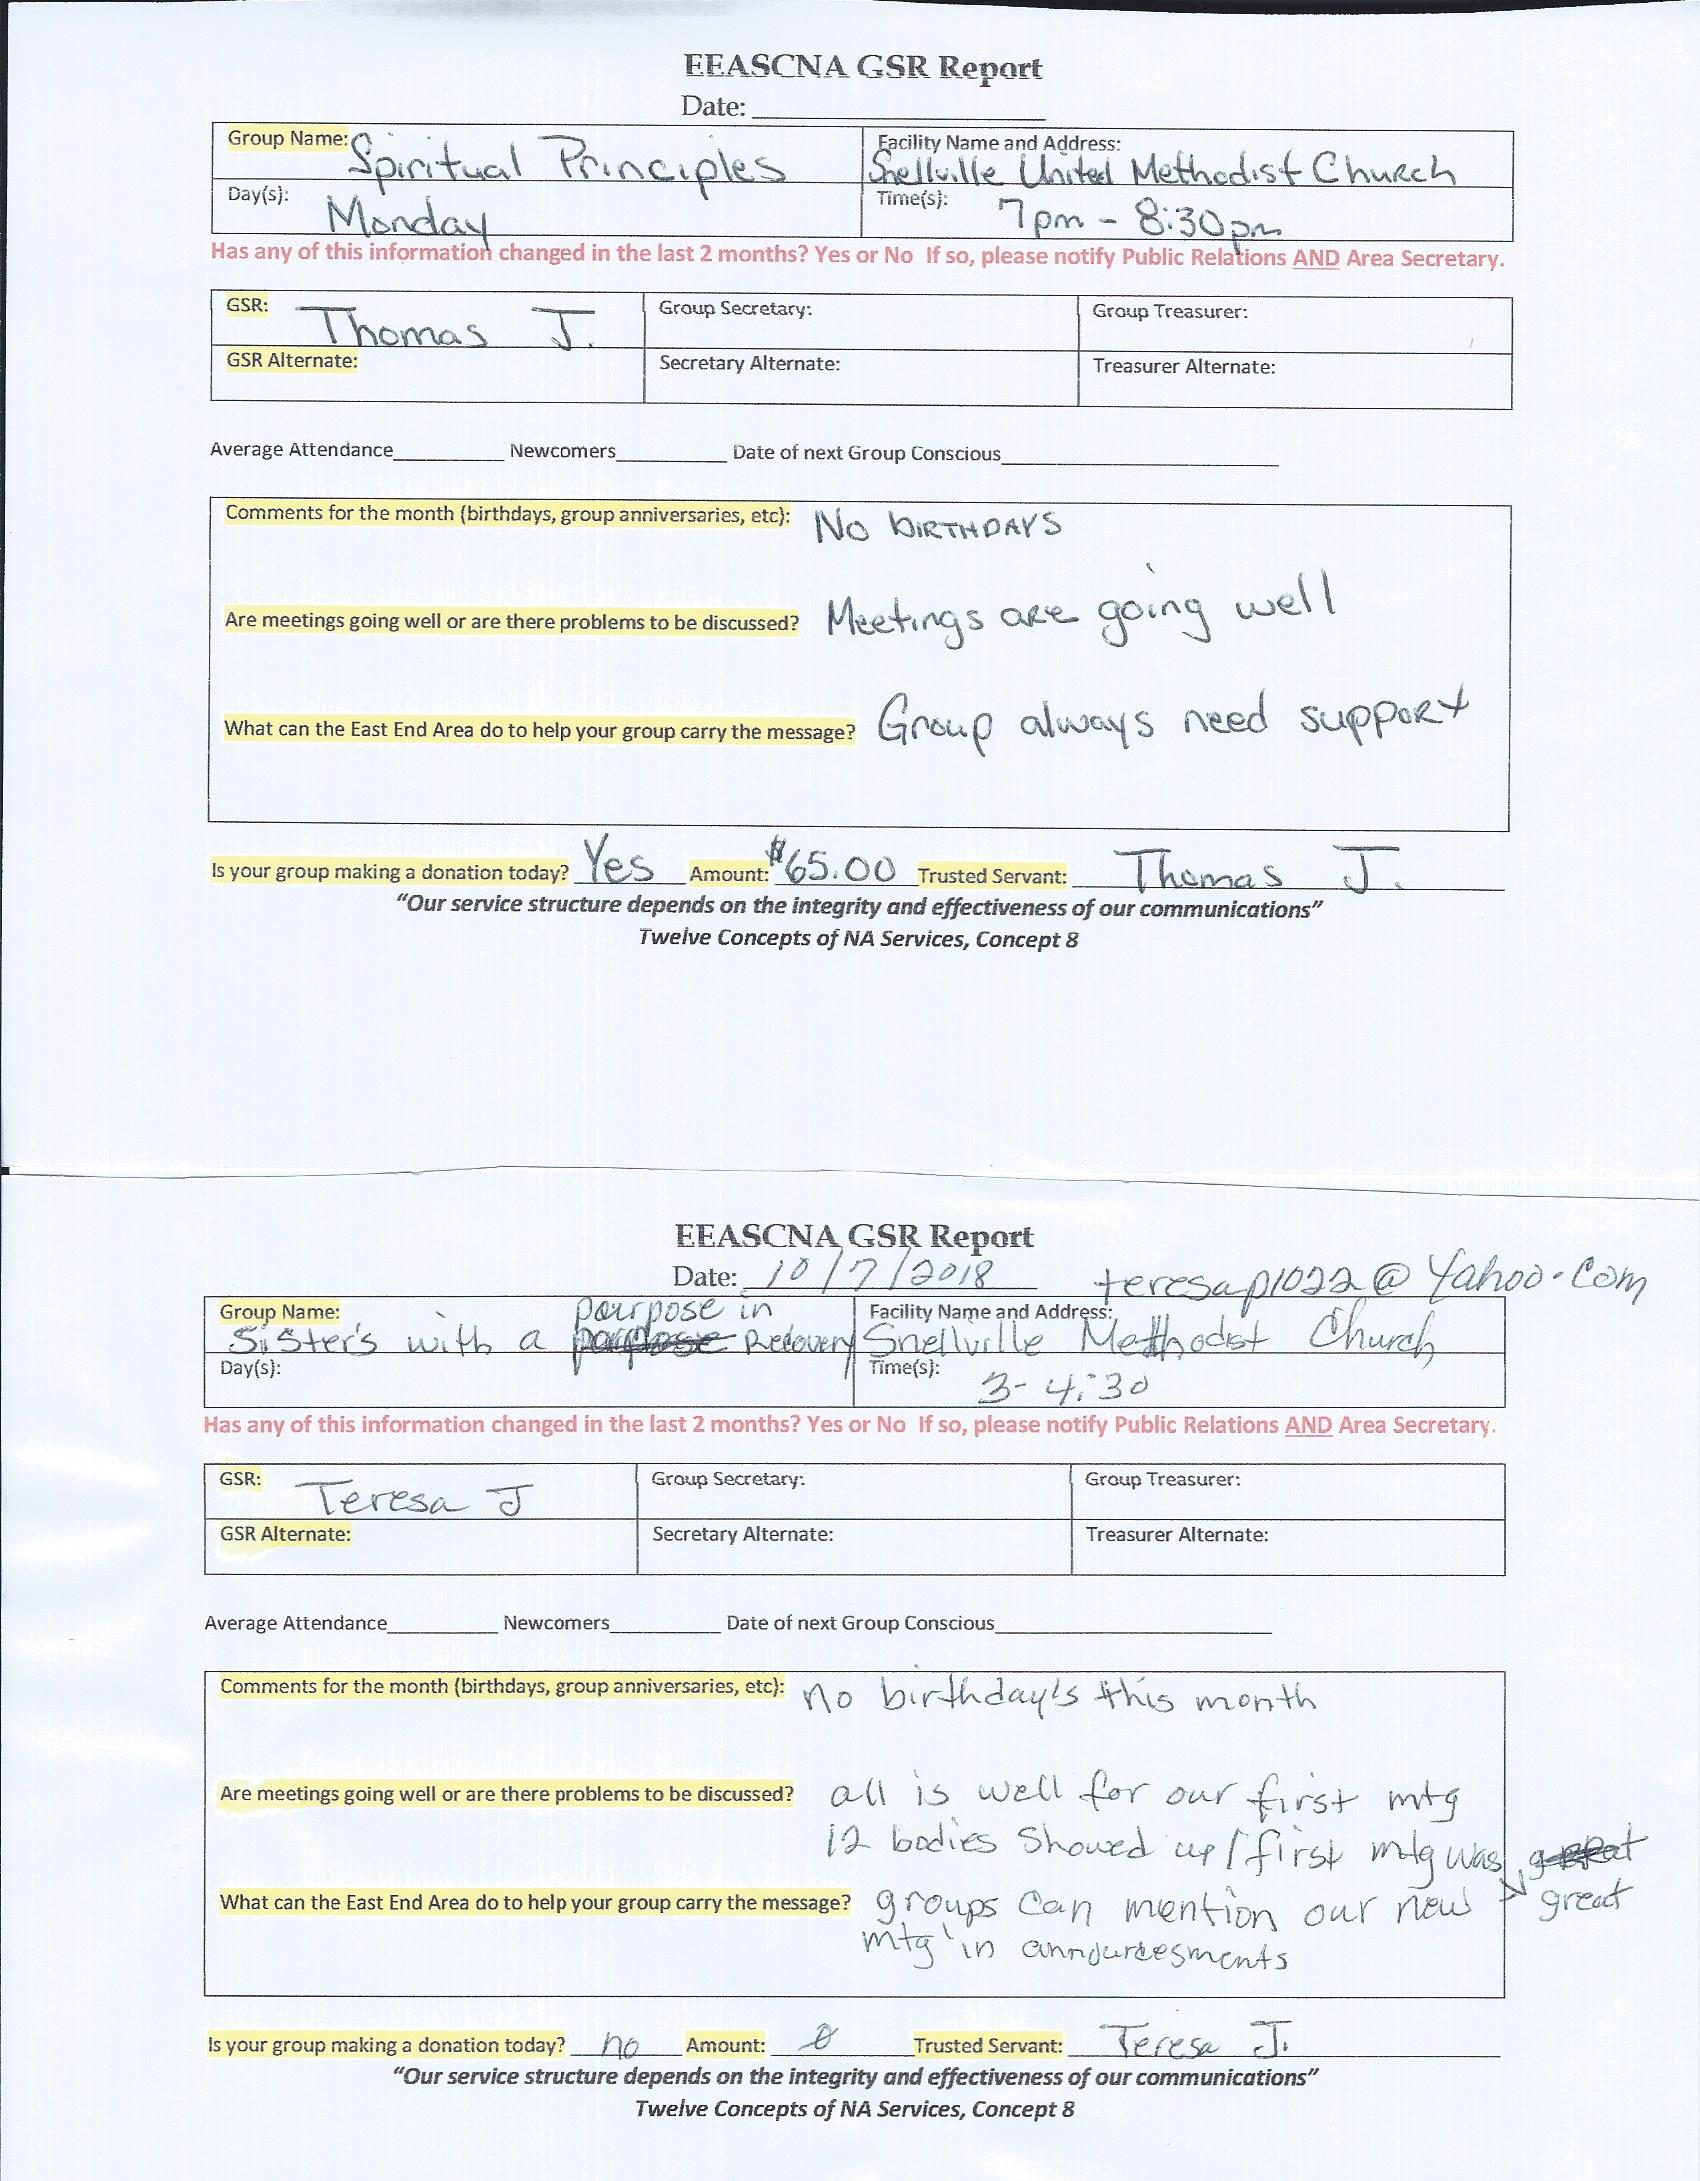 EEASCNA GSR Report
Date:
Group Name: Spiritual Principles
Facility Name and Address: Snellville United Methodist Church
Day(s): Monday
Time(s): 7pm - 8:30pm
Has any of this information changed in the last 2 months? Yes or No If so, please notify Public Relations AND Area Secretary.
GSR: Thomas J.
Group Secretary:
Group Treasurer:
GSR Alternate:
Secretary Alternate:
Treasurer Alternate:
Average Attendance Newcomers Date of next Group Conscious
Comments for the month (birthdays, group anniversaries, etc): No BIRTHDAYS
Are meetings going well or are there problems to be discussed? Meetings are going well
What can the East End Area do to help your group carry the message? Group always need support
Is your group making a donation today? Yes Amount: $65.00 Trusted Servant: Thomas J.
"Our service structure depends on the integrity and effectiveness of our communications"
Twelve Concepts of NA Services, Concept 8
EEASCNA GSR Report
Date: 10/7/2018 teresap1022@Yahoo.com
Group Name: Sister's with a pourpose in Recovery
Facility Name and Address: Snellville Methodist Church
Day(s):
Time(s): 3-4:30
Has any of this information changed in the last 2 months? Yes or No If so, please notify Public Relations AND Area Secretary.
GSR: Teresa J
Group Secretary:
Group Treasurer:
GSR Alternate:
Secretary Alternate:
Treasurer Alternate:
Average Attendance Newcomers Date of next Group Conscious
Comments for the month (birthdays, group anniversaries, etc): no birthday's this month
Are meetings going well or are there problems to be discussed? all is well for our first mtg
12 bodies showed up / first mtg was great
What can the East End Area do to help your group carry the message? groups can mention our new
mtg in announcesments
Is your group making a donation today? no Amount: 0 Trusted Servant: Teresa J.
"Our service structure depends on the integrity and effectiveness of our communications"
Twelve Concepts of NA Services, Concept 8